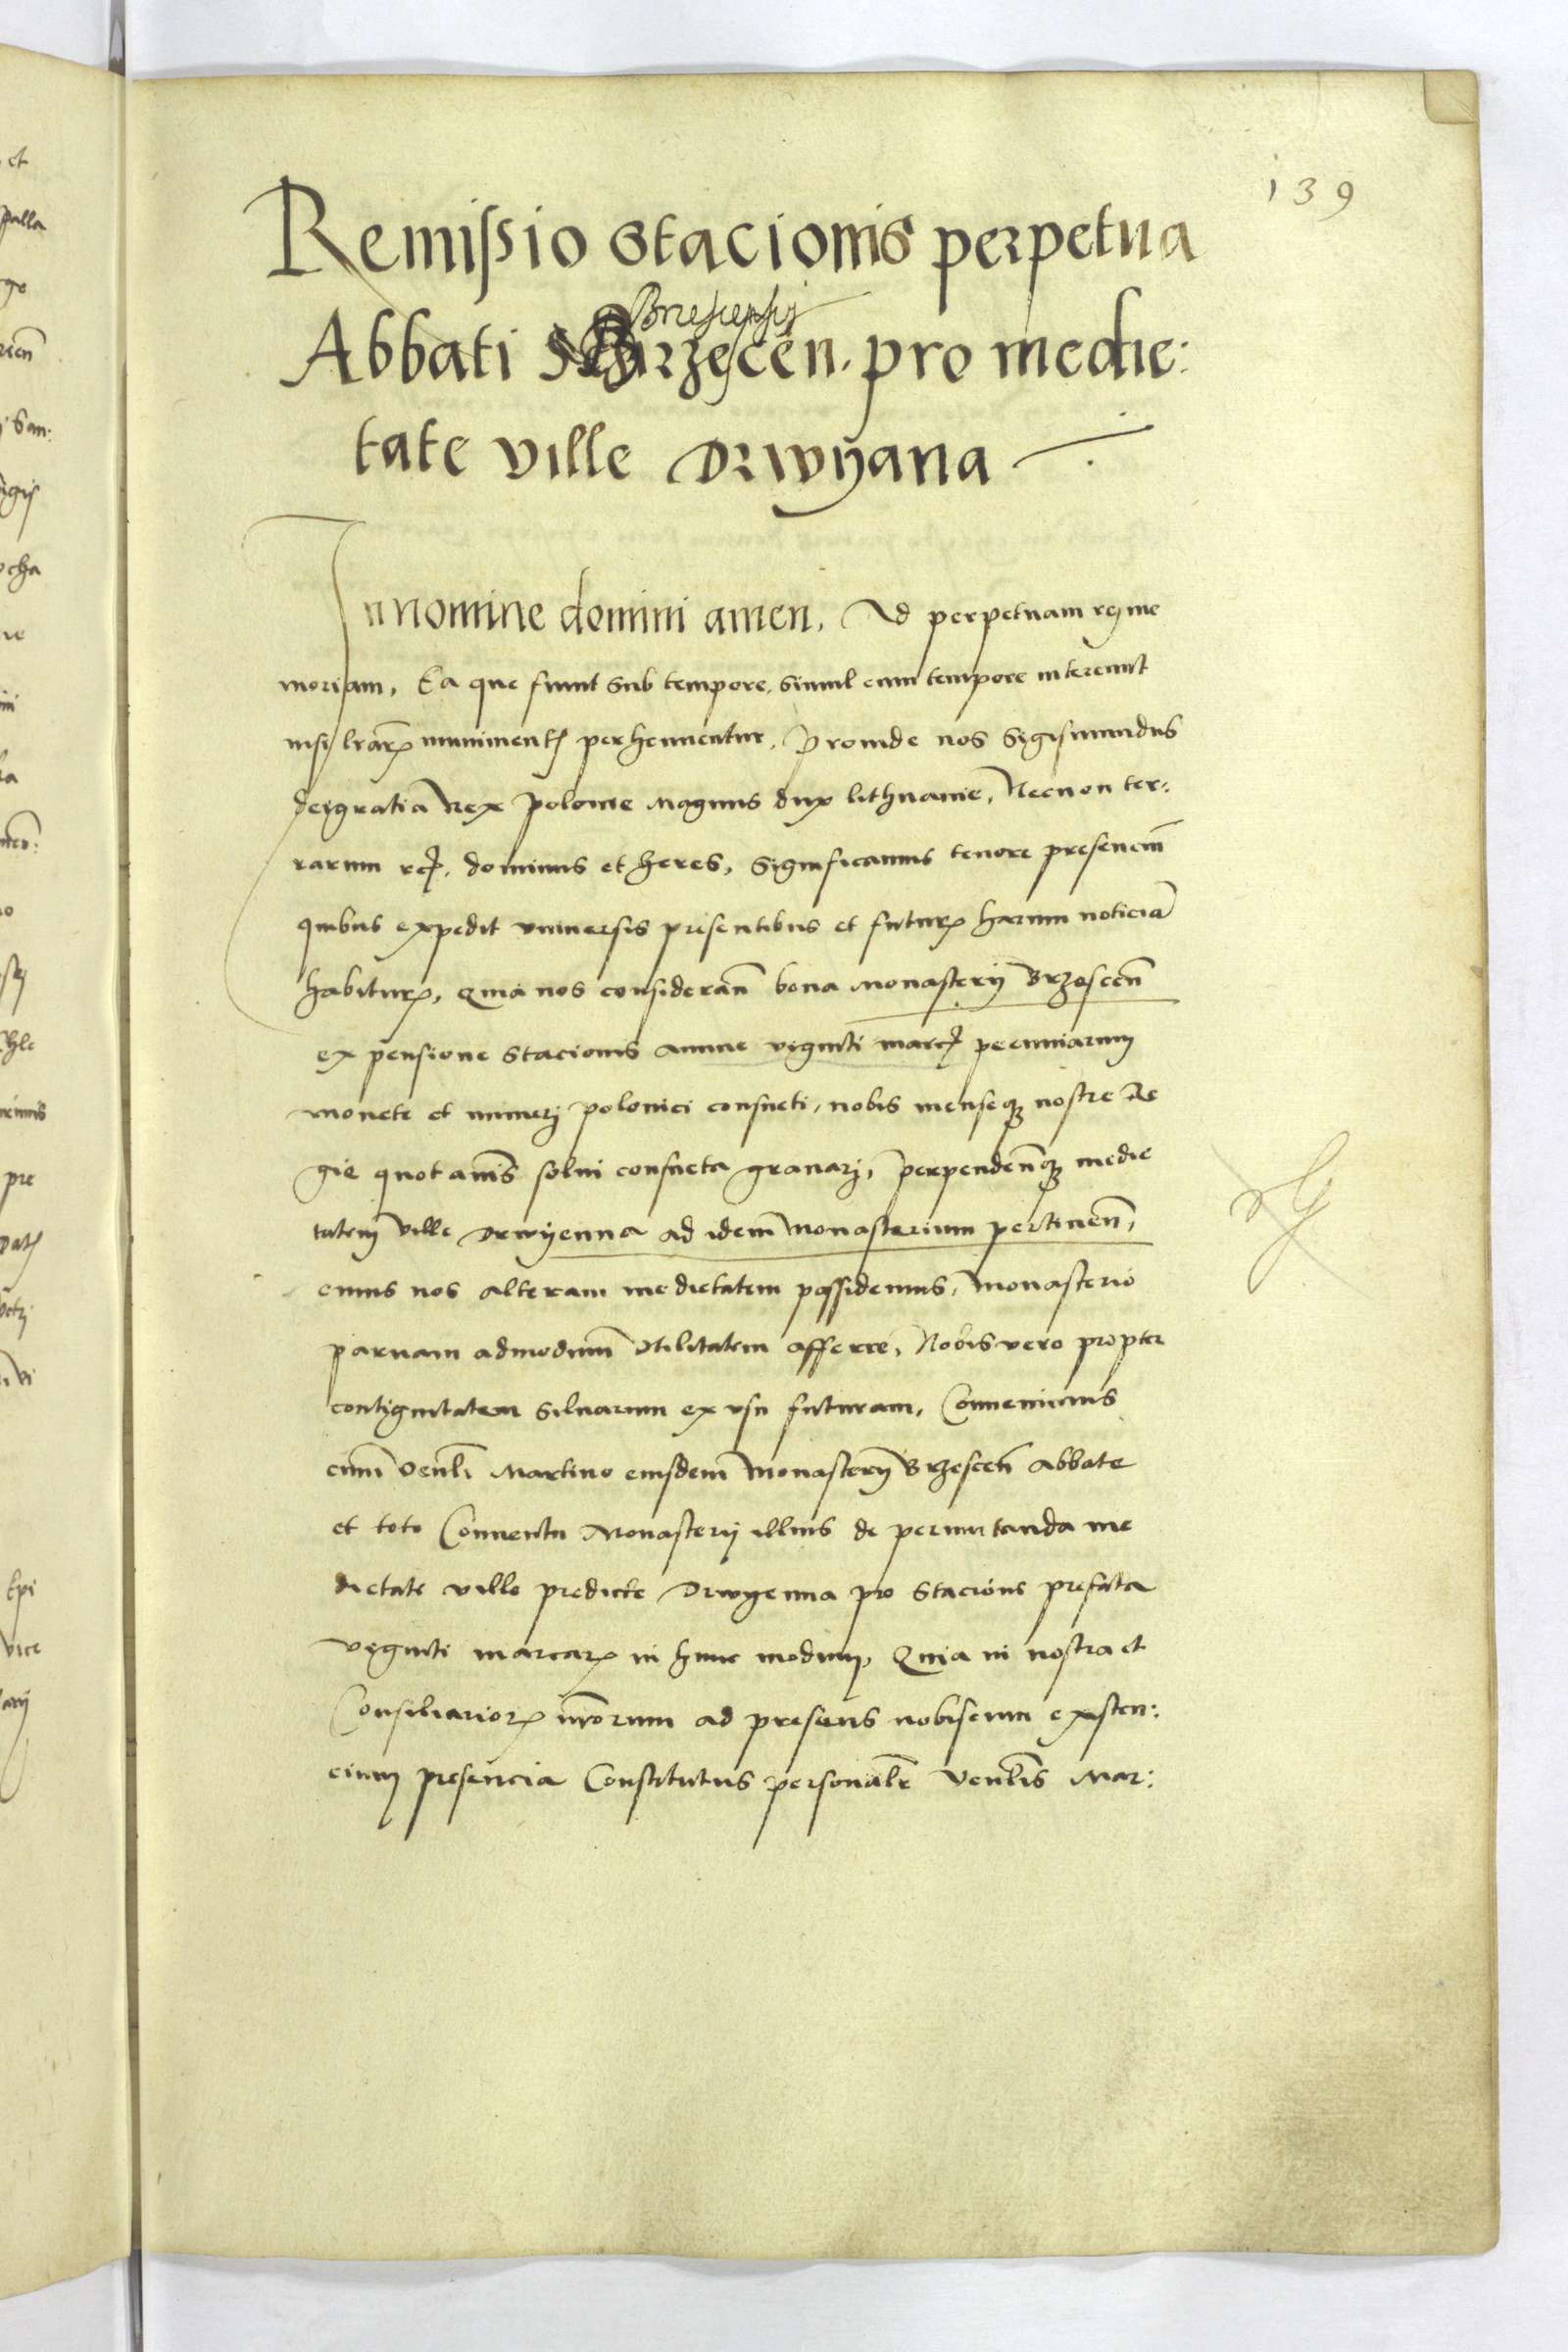 139
Remissio stacionis perpetua
Brzescensi
Abbati Brzescen. pro medie:
tate ville Drwyana
In nomine domini amen. Ad perpetuam rej me
moriam. Ea que fiunt sub tempore, simul cum tempore intereunt
nisi lrar munimentis perhennentur. Proinde nos Sigismundus
dei gratia Rex Polonie Magnus dux lithuanie, Necnon ter:
rarum etc. dominus et heres, Significamus tenore presencium
quibus expedit vniuersis presentibus et futuris harum noticia
habituris, Quia nos consideran bona Monasterij Brzescen
ex pensione stacionis annue viginti marcis pecuniarum
monete et numeri polonici consueti, nobis menseque nostre Re
gie quotannis solui consueta grauari, perpendenque medie
tatem ville Drwyenna ad idem Monasterium pertinen,
cuius nos alteram medietatem possidemus, Monasterio
paruam admodum vtilitatem afferre, Nobis vero propter
contiguitatem siluarum ex vsu futuram, Conuenimus
cum venli Martino eiusdem Monasterij Brzescen Abbate
et toto Conuentu Monasterij illius de permutanda me
dietate ville predicte Drwyenna pro stacione prefata
viginti marcar in hunc modum, Quia in nostra et
Consiliarior nrorum ad presens nobiscum existen:
cium presencia Constitutus personalr venlis Mar: